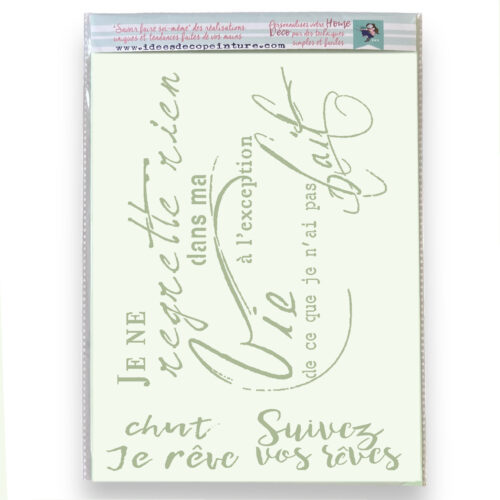 "Savoir faire soi-même" des réalisations
uniques et tendances faites de vos mains
www.ideesdecopeinture.com
Personnalisez votre Home
Déco par des techniques
simples et faciles
JE NE
regrette rien
dans ma
Vie
à l'exception
de ce que je n'ai pas
fait
chut
Je rêve
Suivez
vos rêves